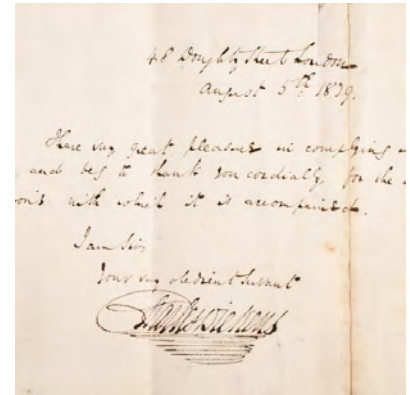 48 Doughty Street London
August 5th 1839.
I have very great pleasure in complying
and beg to thank you cordially for the
with which it is accompanied.
I am Sir
Your very obedient Servant
Charles Dickens